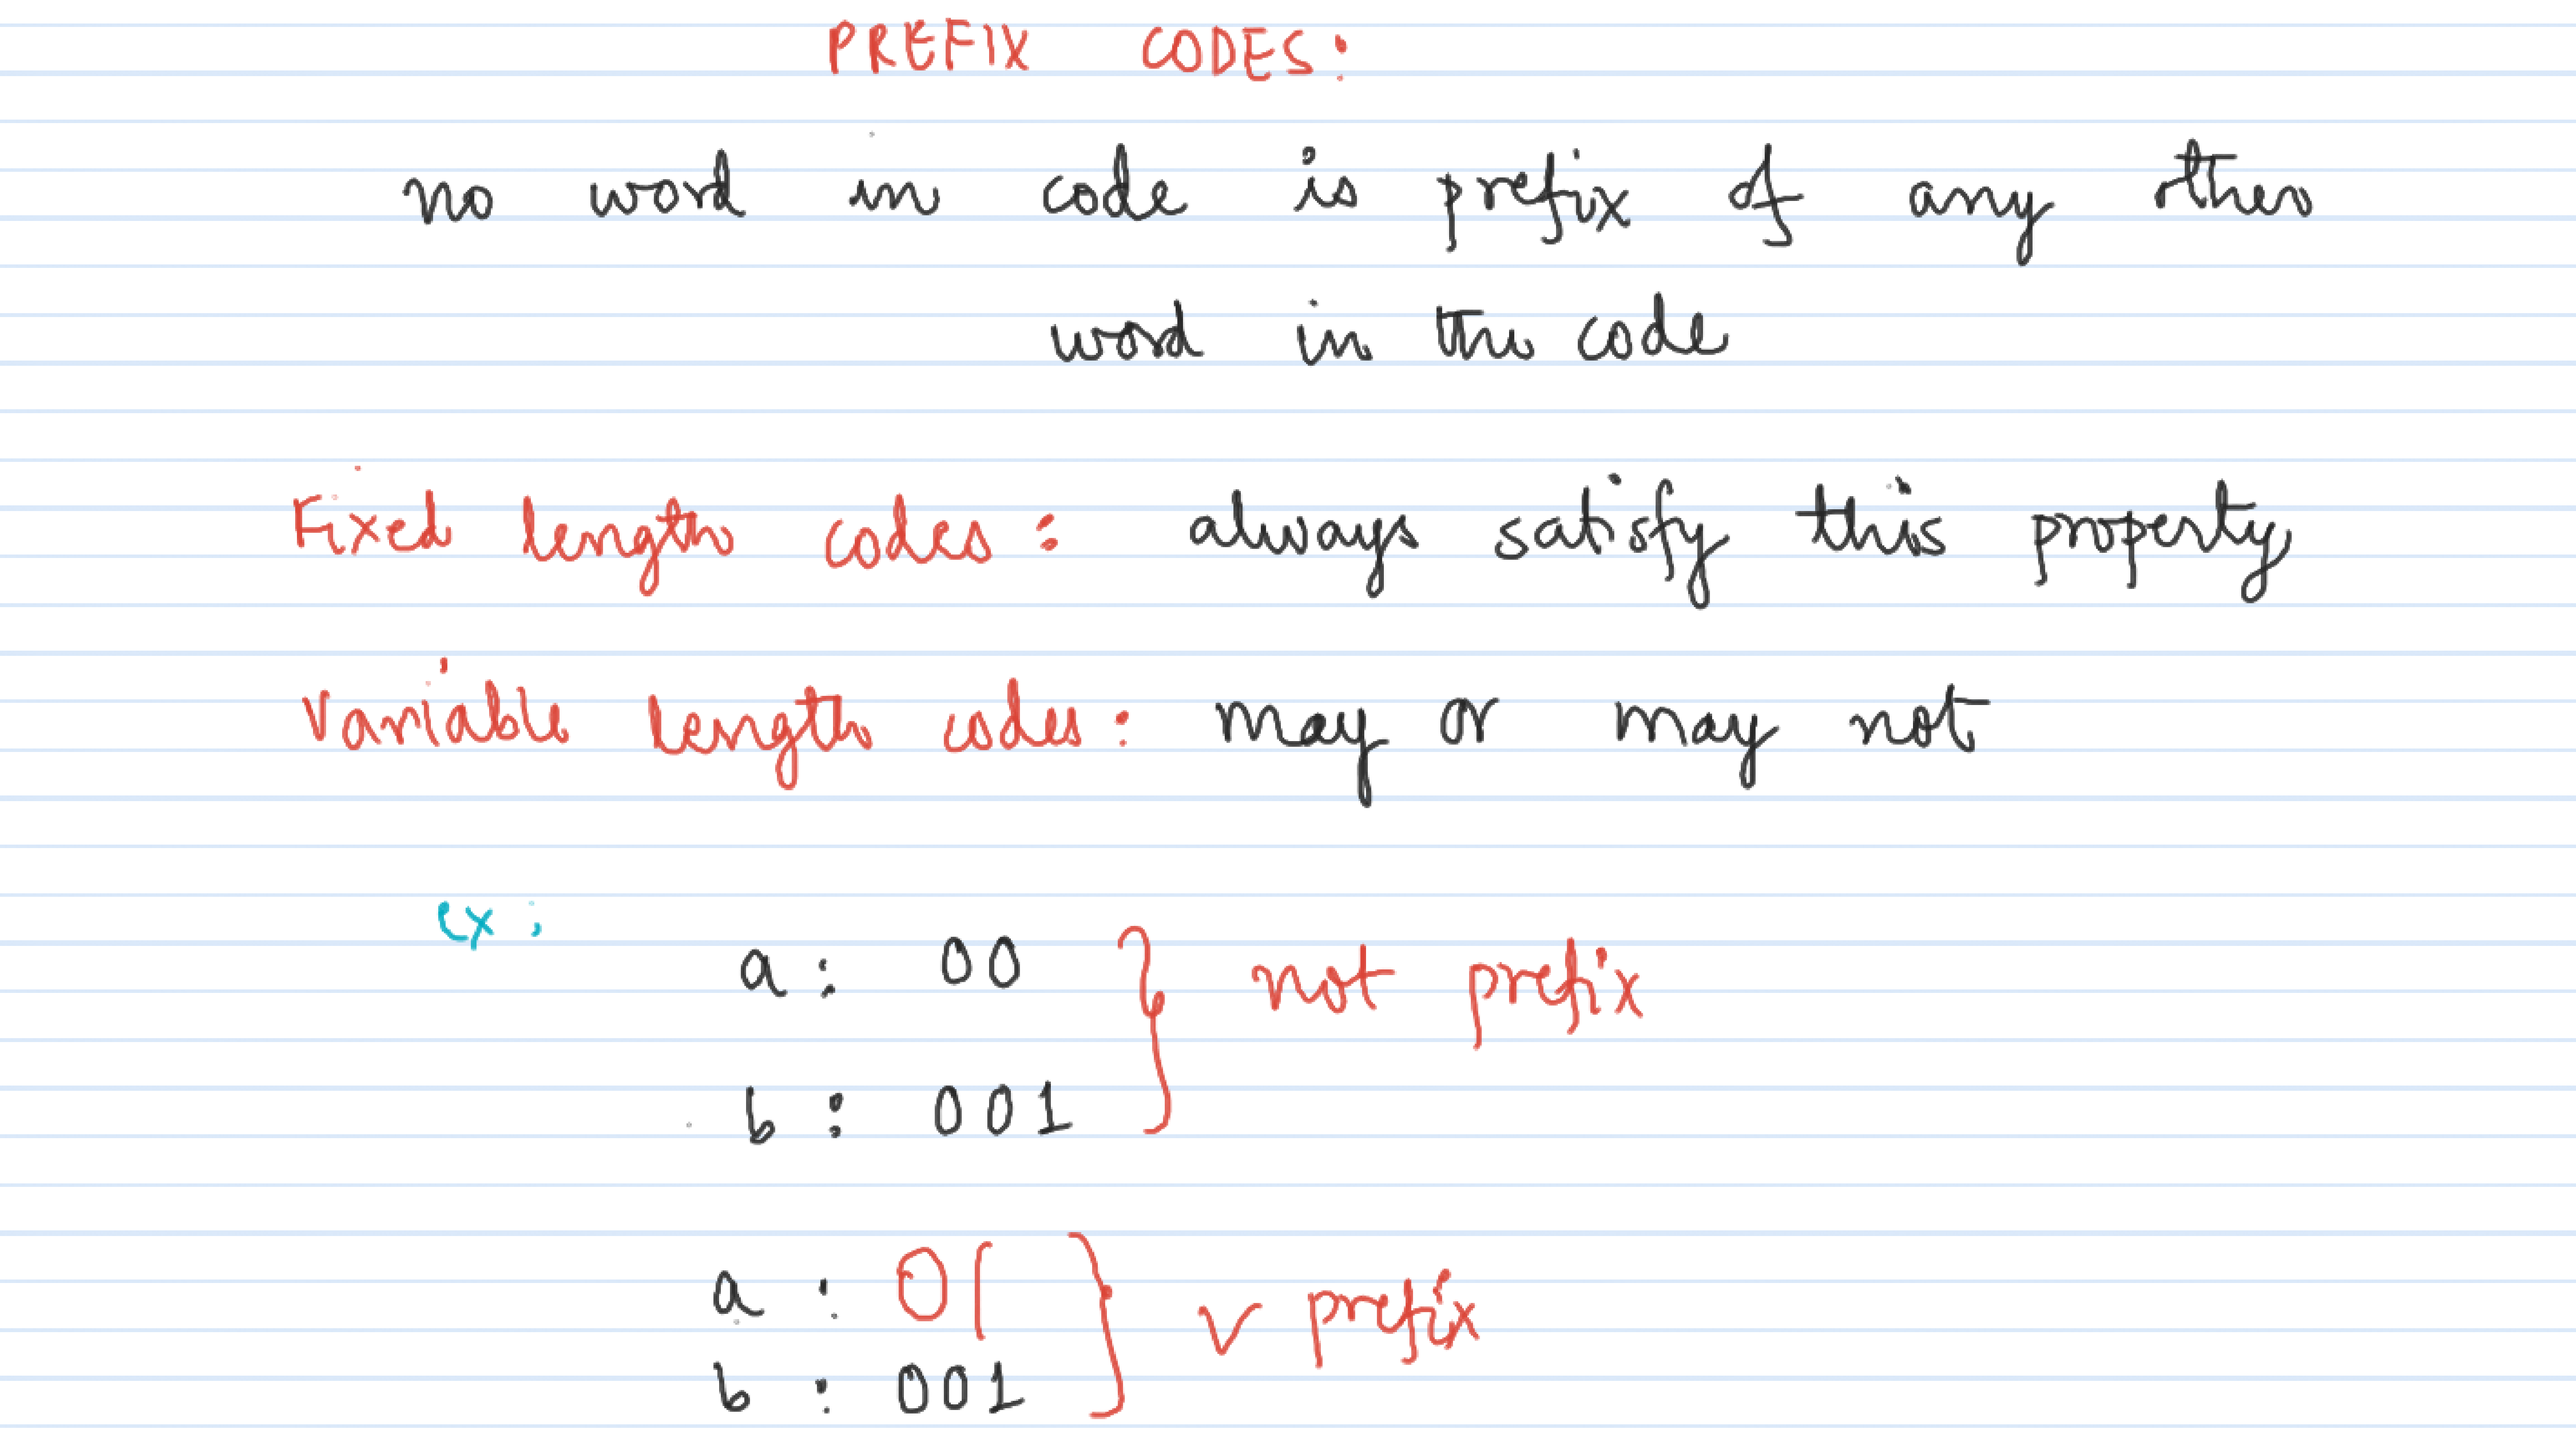 PREFIX CODES:
no word in code is prefix of any other
word in the code
Fixed length codes: always satisfy this property
Variable length codes: may or may not
ex:
a: 00
not prefix
b: 001
a: 01
✓ prefix
b: 001